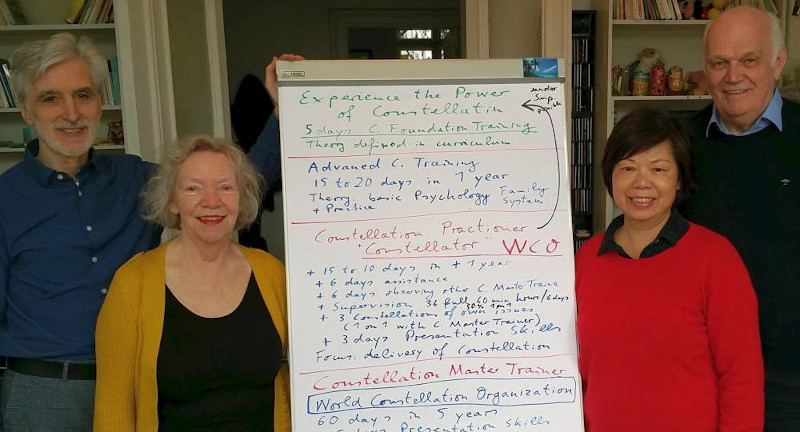 Experience the Power
of Constellatin
5 days C. Foundation Training
Theory defined in curriculum
under
Sup.
Advaned C. Training
15 to 20 days in 1 year
Theory: basic Psychology Family
+ Practice System
Constellation Practioner
"Constellator" WCO
+ 15 to 10 days in + 1 year
+ 6 days assistance
+ 6 days observing other C. Master Traine
+ Supervision 36 full 60 min hours/6 days
50% 1on1
+ 3 Constellations of own issues
(1 on 1 with C. Master Trainer)
+ 3 days Presentation Skills
Focus: delivery of Constellation
Constellation Master Trainer
World Constellation Organization
60 days in 5 years
days Presentation skills